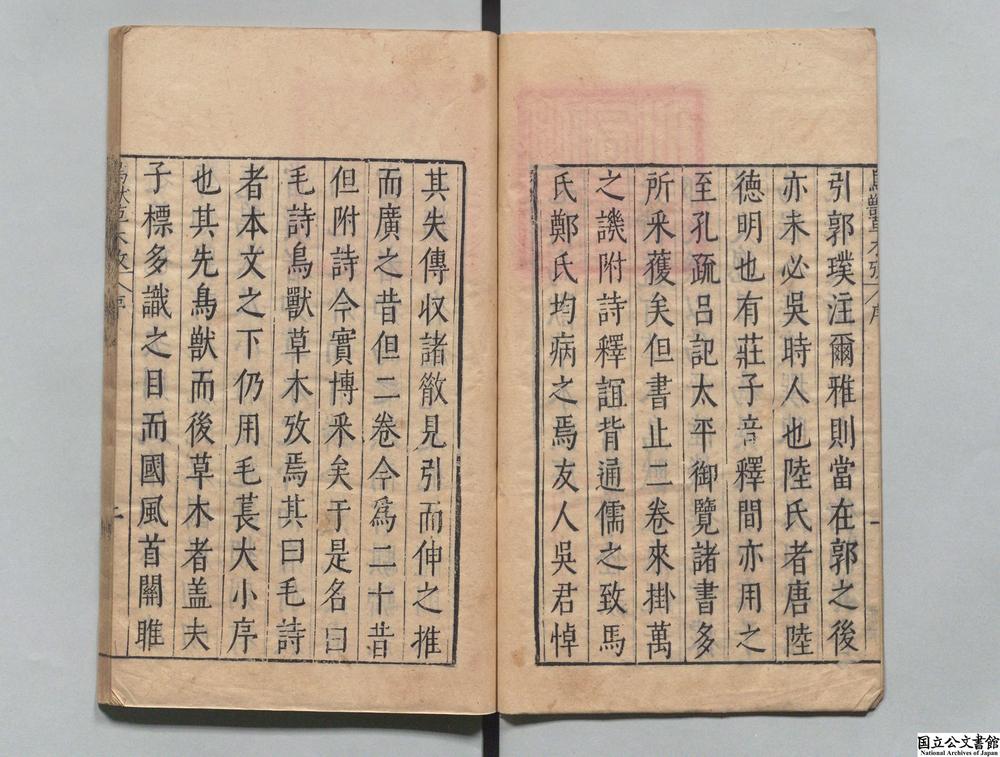 引郭璞注爾雅則當在郭之後
亦未必吳時人也陸氏者唐陸
德明也有莊子音釋間亦用之
至孔疏呂記太平御覽諸書多
所釆蒦矣但書止二卷來掛萬
之譏附詩釋誼背通儒之致馬
氏鄭氏均病之焉友人吳君悼
其失傳収諸散見引而伸之推
而廣之昔但二卷今爲二十昔
但附詩今實博釆矣于是名曰
毛詩鳥獸草木攷焉其曰毛詩
者本文之下仍用毛萇大小序
也其先鳥獸而後草木者盖夫
子標多識之目而國風首關雎
国立公文書館
National Archives of Japan